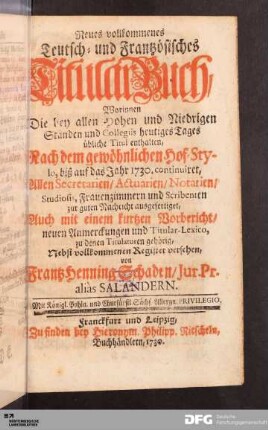 Neues vollkommenes
Teutsch- und Frantzösisches
Titular-Buch,
Worinnen
Die bey allen Hohen und Niedrigen
Ständen und Collegiis heutiges Tages
übliche Titul enthalten,
Nach dem gewöhnlichen Hof-Sty-
lo, biß auf das Jahr 1730. continuiret,
Allen Secretarien/ Actuarien/ Notarien/
Studiosis, Frauenzimmern und Scribenten
zur guten Nachricht ausgefertiget,
Auch mit einem kurtzen Vorbericht/
neuen Anmerckungen und Titular-Lexico,
zu denen Titulaturen gehörig,
Nebst vollkommenen Register versehen,
von
Frantz Henning Schaden/ Jur. Pr.
alias SALANDERN.
Mit Königl. Pohln. und Churfürstl. Sächs. allergn. PRIVILEGIO.
Franckfurt und Leipzig,
Zu finden bey Hieronym. Philipp. Ritscheln,
Buchhändlern, 1730.
DFG Deutsche
Forschungsgemeinschaft